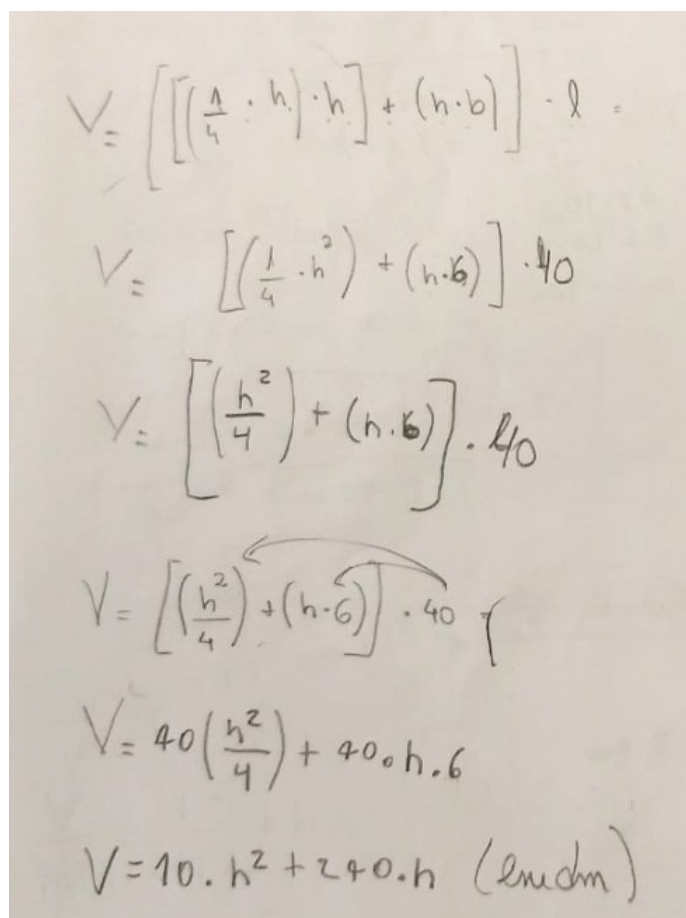 V = [[(1/4 · h) · h] + (h · b)] · l =
V = [(1/4 · h²) + (h · 6)] · 40
V = [(h²/4) + (h · 6)] · 40
V = [(h²/4) + (h · 6)] · 40
V = 40(h²/4) + 40 · h · 6
V = 10 · h² + 240 · h